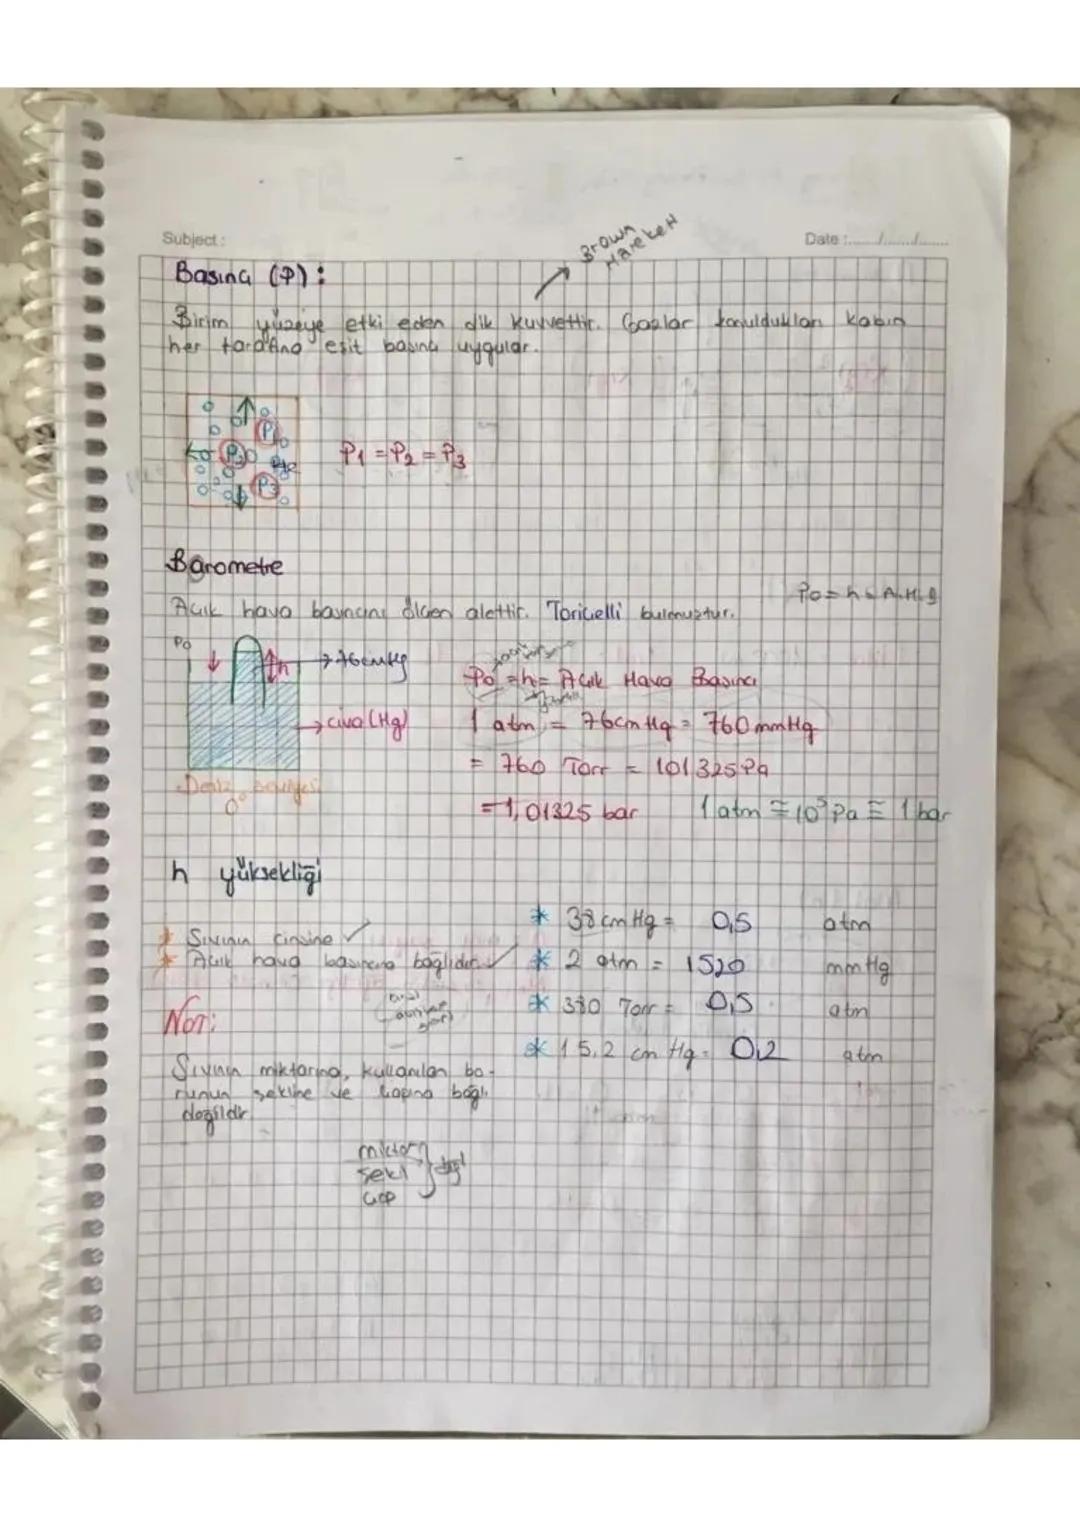 Subject:
Date :....../....../......
Brown
Hareketi
Basınç (P) :
Birim yüzeye etki eden dik kuvvettir. Gazlar konuldukları kabın
her tarafına eşit basınç uygular.
P1
P2
P3
P1 = P2 = P3
Barometre
Açık hava basıncını ölçen alettir. Toriçelli bulmuştur.
Po = h = A.H.B
Po
h
76 cmHg
Po = h = Açık Hava Basıncı
civa (Hg)
1 atm = 76 cmHg = 760 mmHg
= 760 Torr = 101325 Pa
Deniz seviyesi
0°
= 1,01325 bar
1 atm ≅ 10⁵ Pa ≅ 1 bar
h yüksekliği
* Sıvının cinsine ✓
* Açık hava basıncına bağlıdır. ✓
* 38 cm Hg = 0,5 atm
* 2 atm = 1520 mm Hg
* 380 Torr = 0,5 atm
* 15,2 cm Hg = 0,2 atm
Not:
Sıvının miktarına, kullanılan bo-
runun şekline ve çapına bağlı
değildir.
miktar
şekil
çap
değil